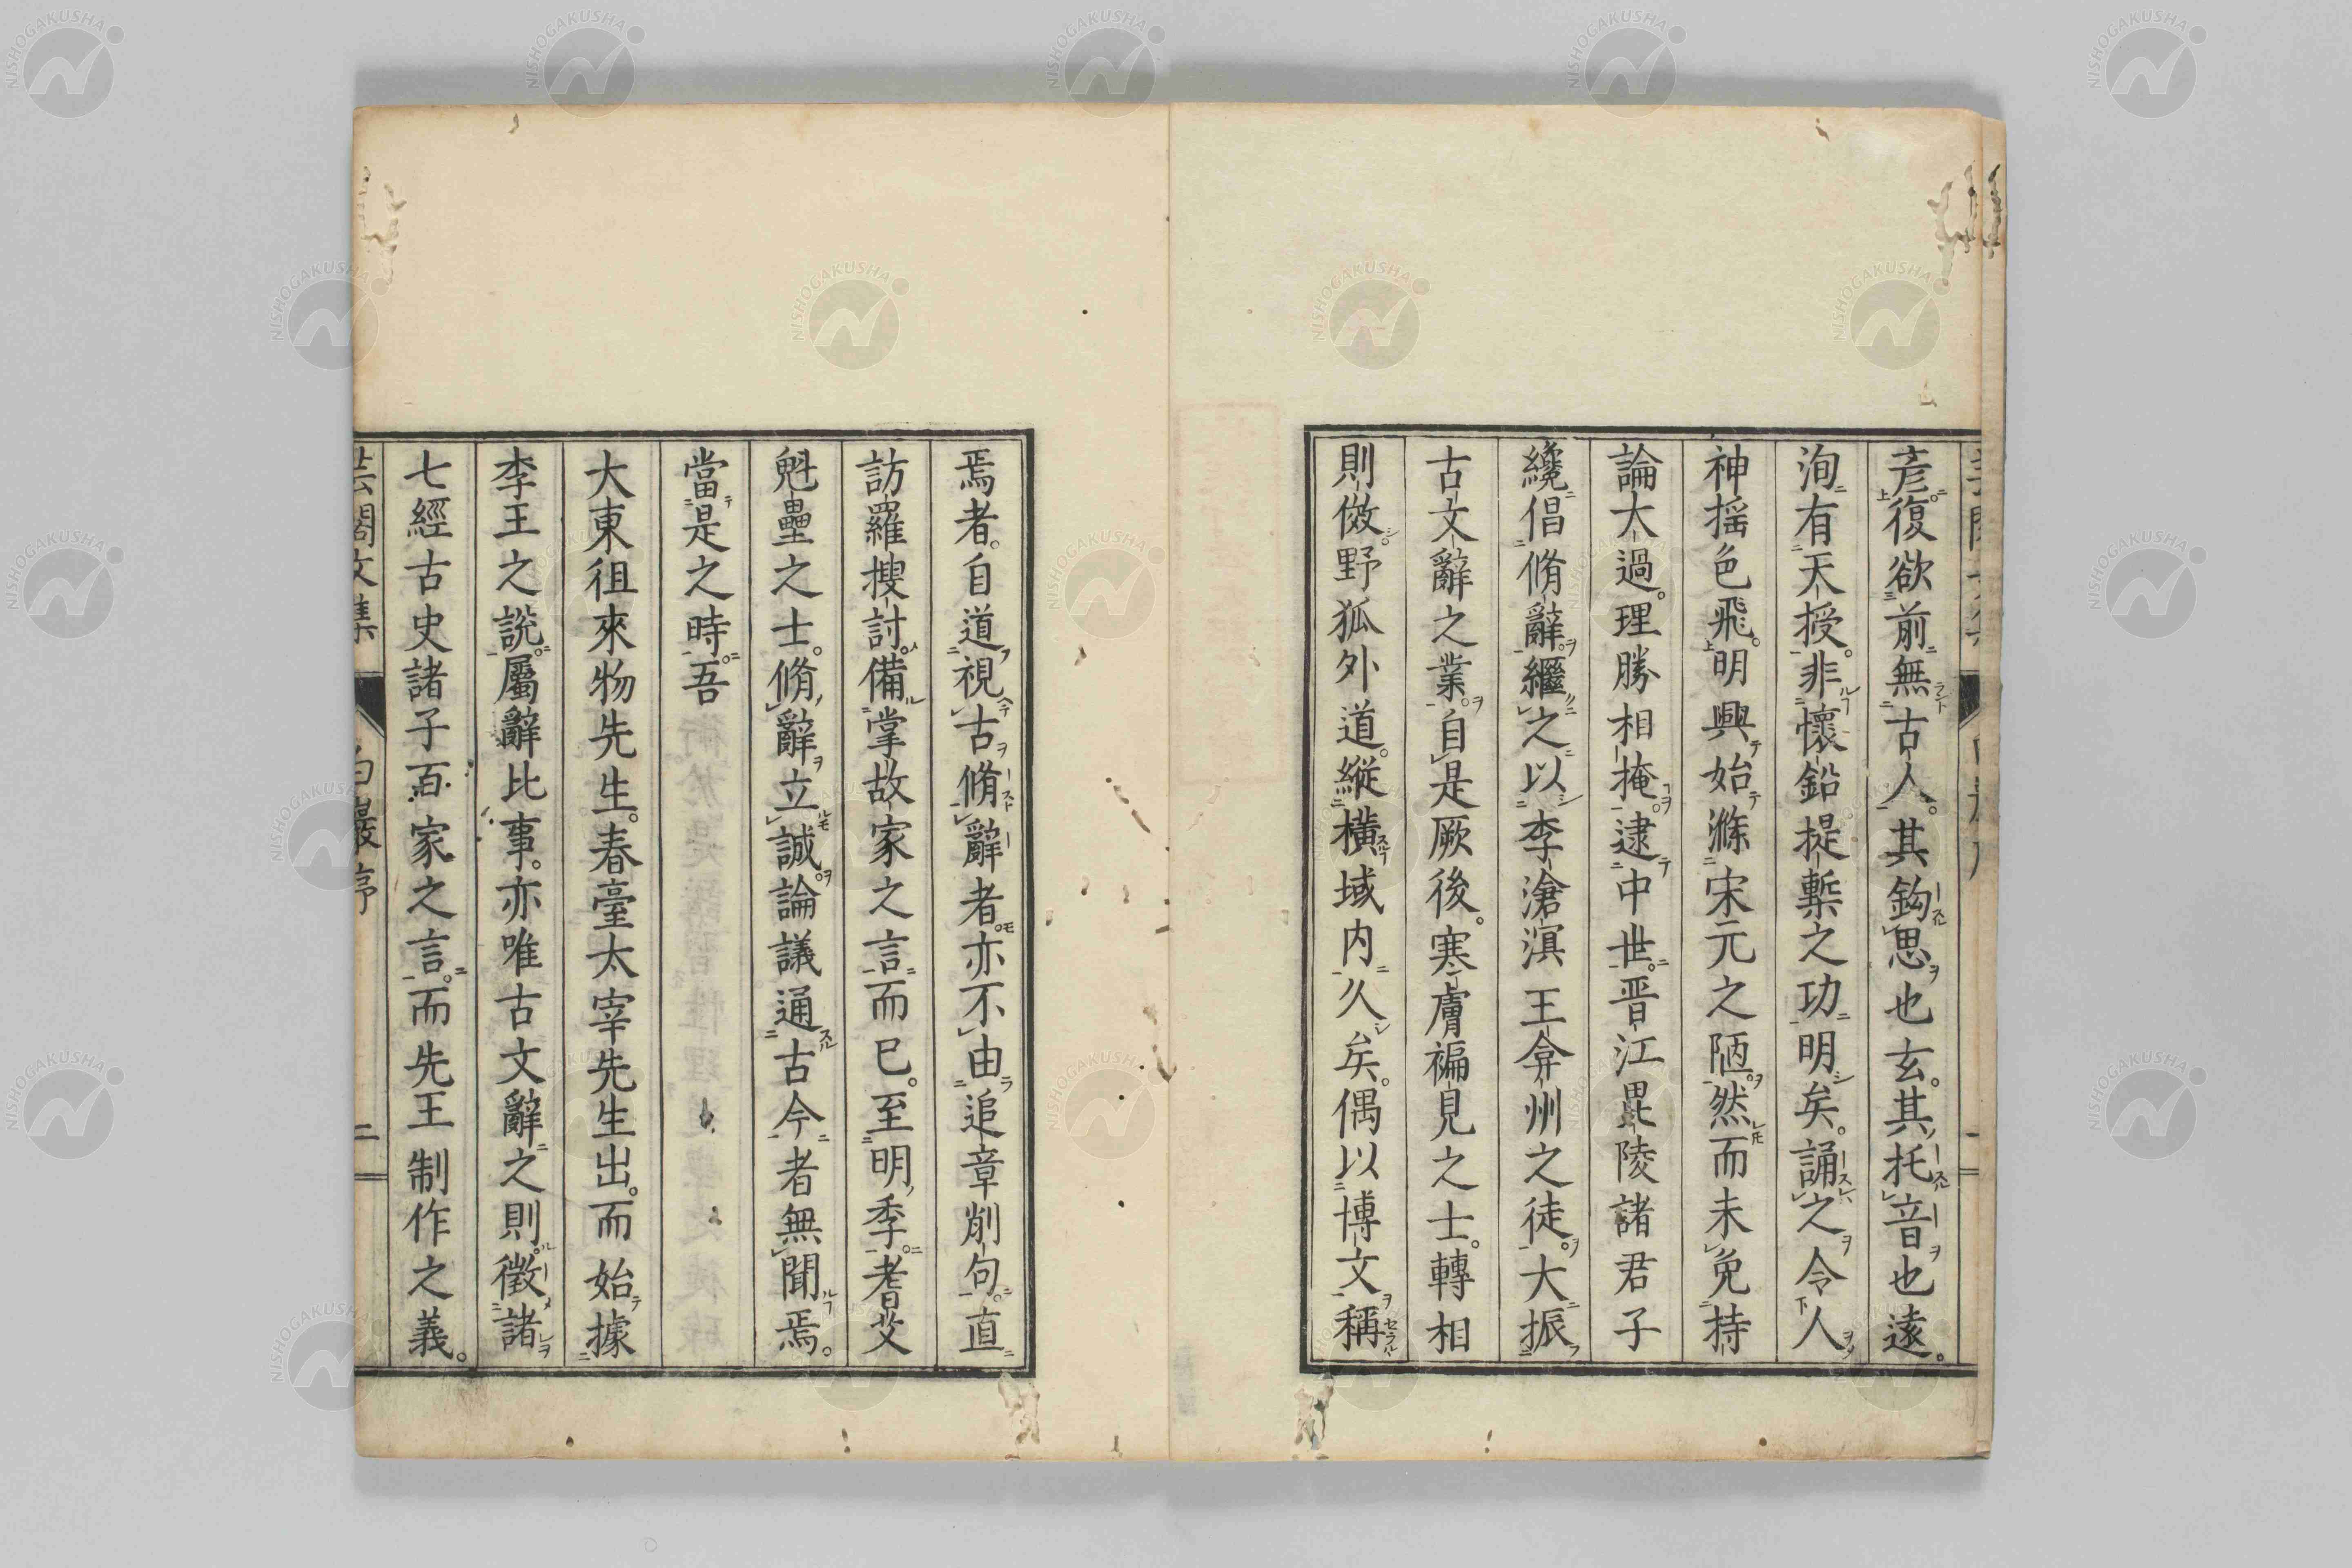 彦復欲前無古人。其鈎思也玄。其托音也遠。
洵有天授。非懷鉛提槧之功明矣。誦之令人
神搖色飛。明興始滌宋元之陋。然而未免持
論大過。理勝相掩。逮中世。晋江毘陵諸君子
纔倡脩辭繼之以李滄溟王弇州之徒。大振
古文辭之業。自是厥後。寒膚褊見之士。轉相
則傚。野狐外道。縱橫域内久矣。偶以博文稱
焉者。自道視古脩辭者。亦不由追章削句。直
訪羅搜討。備掌故家之言而已。至明季。耆艾
魁壘之士。脩辭立誠。論議通古今者無聞焉。
當是之時。吾
大東徂來物先生。春臺太宰先生出。而始據
李王之說。屬辭比事。亦唯古文辭之則。徵諸
七經古史諸子百家之言。而先王制作之義。
芸閣文集 白巖序 二
NISHOGAKUSHA